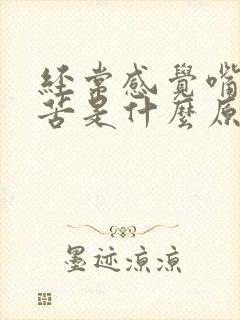 經常感覺嘴
苦是什麼原
墨迹涼涼